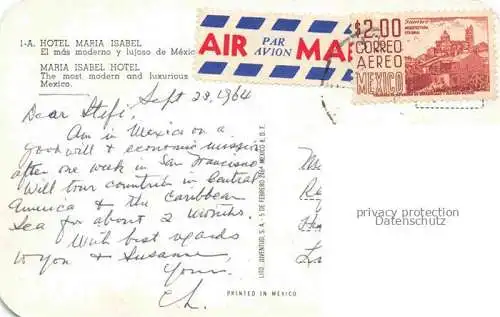 1-A. HOTEL MARIA ISABEL
El más moderno y lujoso de Méxic
MARIA ISABEL HOTEL
The most modern and luxurious
Mexico.
AIR PAR AVION MA
$2.00
CORREO
AEREO
MEXICO
ARQUITECTURA
COLONIAL
Sept 23, 1964
Dear Stefi,
Am in Mexico on a
good will & economic mission
after one week in San Francisco
Will tour countries in Central
America & the Caribbean
Sea for about 2 months.
With best regards
to you & Susanne,
Yours,
LITO. JUVENTUD, S. A. - 5 DE FEBRERO MEXICO 8, D. F.
PRINTED IN MEXICO
privacy protection
Datenschutz